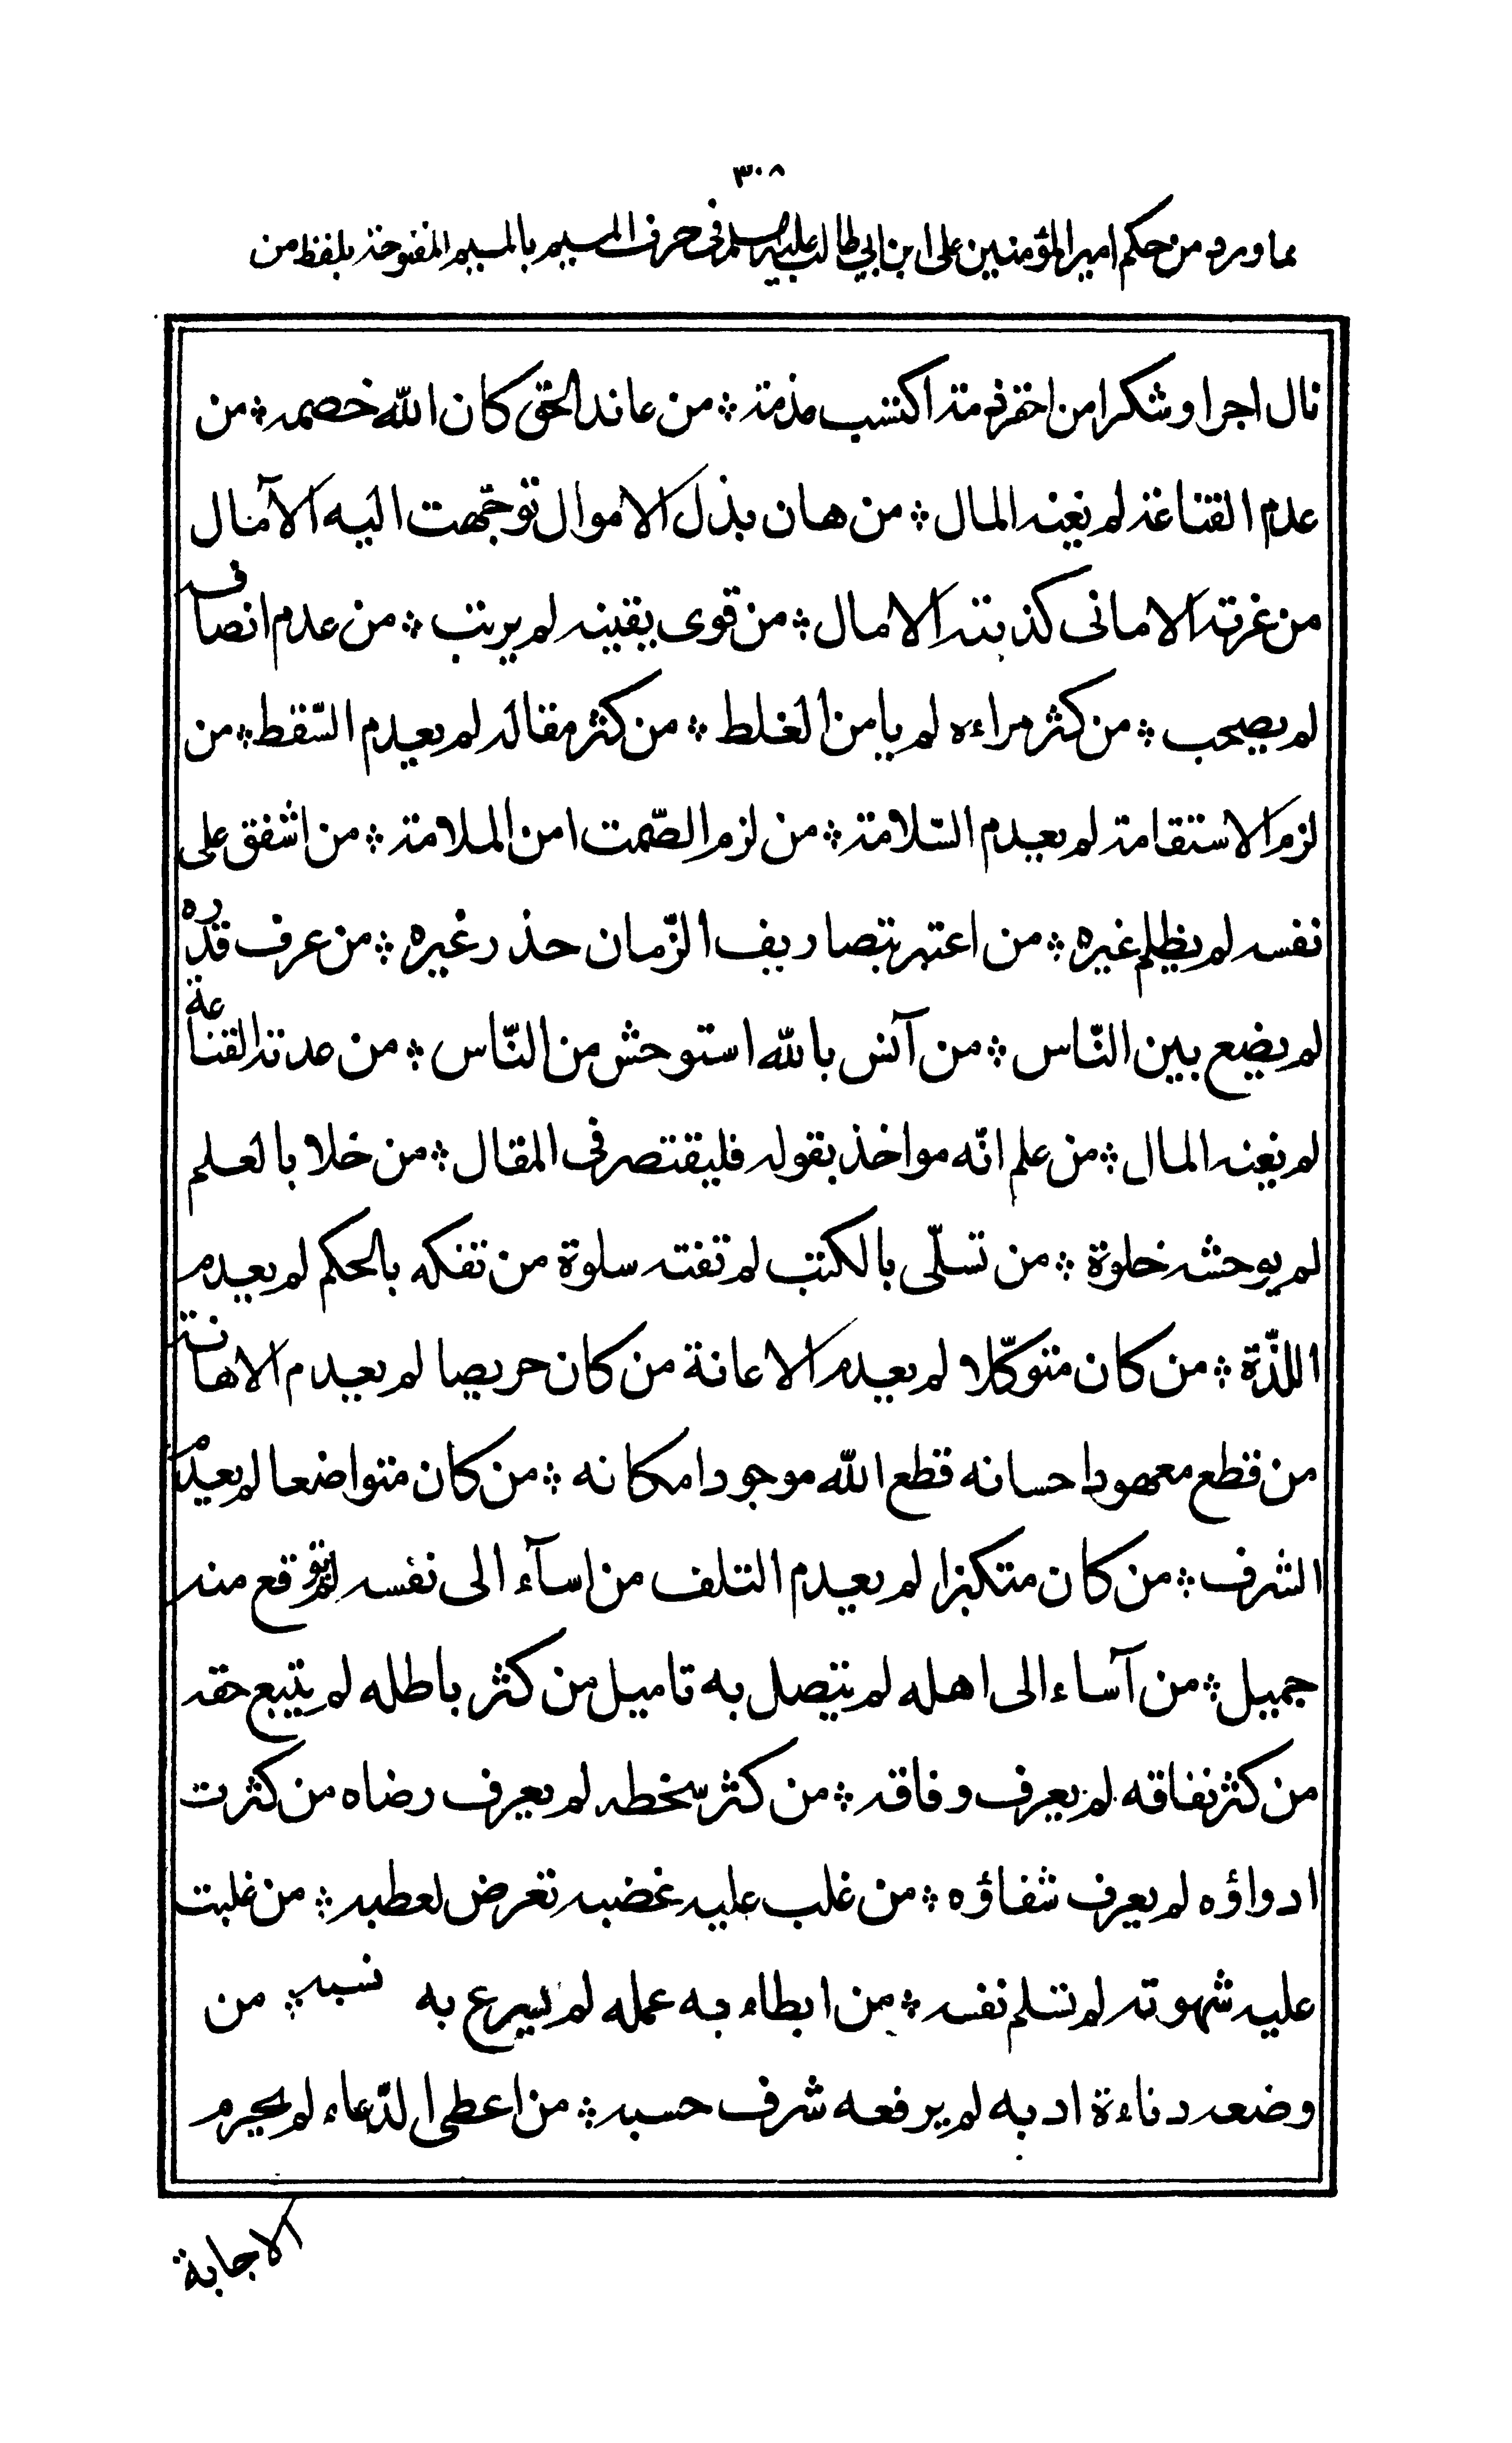 ٣٠٨
مما ورد من حكم امير المؤمنين على ابن ابي طالب عليه السلم فى حرف الميم بالميم المفتوحة بلفظ من
نال اجرا وشكرا من احقر ذمة اكتسب مذمة ؞ من عاند الحق كان الله خصمه ؞ من
عدم القناعة لم يغنه المال ؞ من هان بذل الاموال توجّهت اليه الآمال
من غرته الامانى كذبته الامال ؞ من قوى يقينه لم يرتب ؞ من عدم انصافى
لم يصحب ؞ من كثر مراءه لم يامن الغلط ؞ من كثر مقاله لم يعدم السّقط ؞ من
لزم الاستقامة لم يعدم السّلامة ؞ من لزم الصّمت امن الملامة ؞ من اشفق على
نفسه لم يظلم غيره ؞ من اعتبر بتصاريف الزّمان حذر غيره ؞ من عرف قدره
لم يضع بين النّاس ؞ من آنس بالله استوحش من النّاس ؞ من عدته القناعة
لم يغنه المال ؞ من علم انّه مواخذ بقوله فليقتصر فى المقال ؞ من خلا بالعلم
لم يوحشه خلوة ؞ من تسلّى بالكتب لم تفته سلوة من تفكه بالحكم لم يعدم
اللذّة ؞ من كان متوكّلا لم يعدم الاعانة من كان حريصا لم يعدم الاهانة
من قطع معهود احسانه قطع الله موجود امكانه ؞ من كان متواضعا لم يعدم
الشرف ؞ من كان متكبرا لم يعدم التلف من اسآء الى نفسه لم يتوقع منه
جميل ؞ من آساء الى اهله لم يتصل به تاميل من كثر باطله لم يتبع حقه
من كثر نفاقه لم يعرف وفاقه ؞ من كثر سخطه لم يعرف رضاه من كثرت
ادواؤه لم يعرف شفاؤه ؞ من غلب عليه غضبه تعرض لعطبه ؞ من غلبت
عليه شهوته لم تسلم نفسه ؞ من ابطاء به عمله لم يسرع به نسبه ؞ من
وضعه دناءة ادبه لم يرفعه شرف حسبه ؞ من اعطى الدّعاء لم يحرم
الاجابة